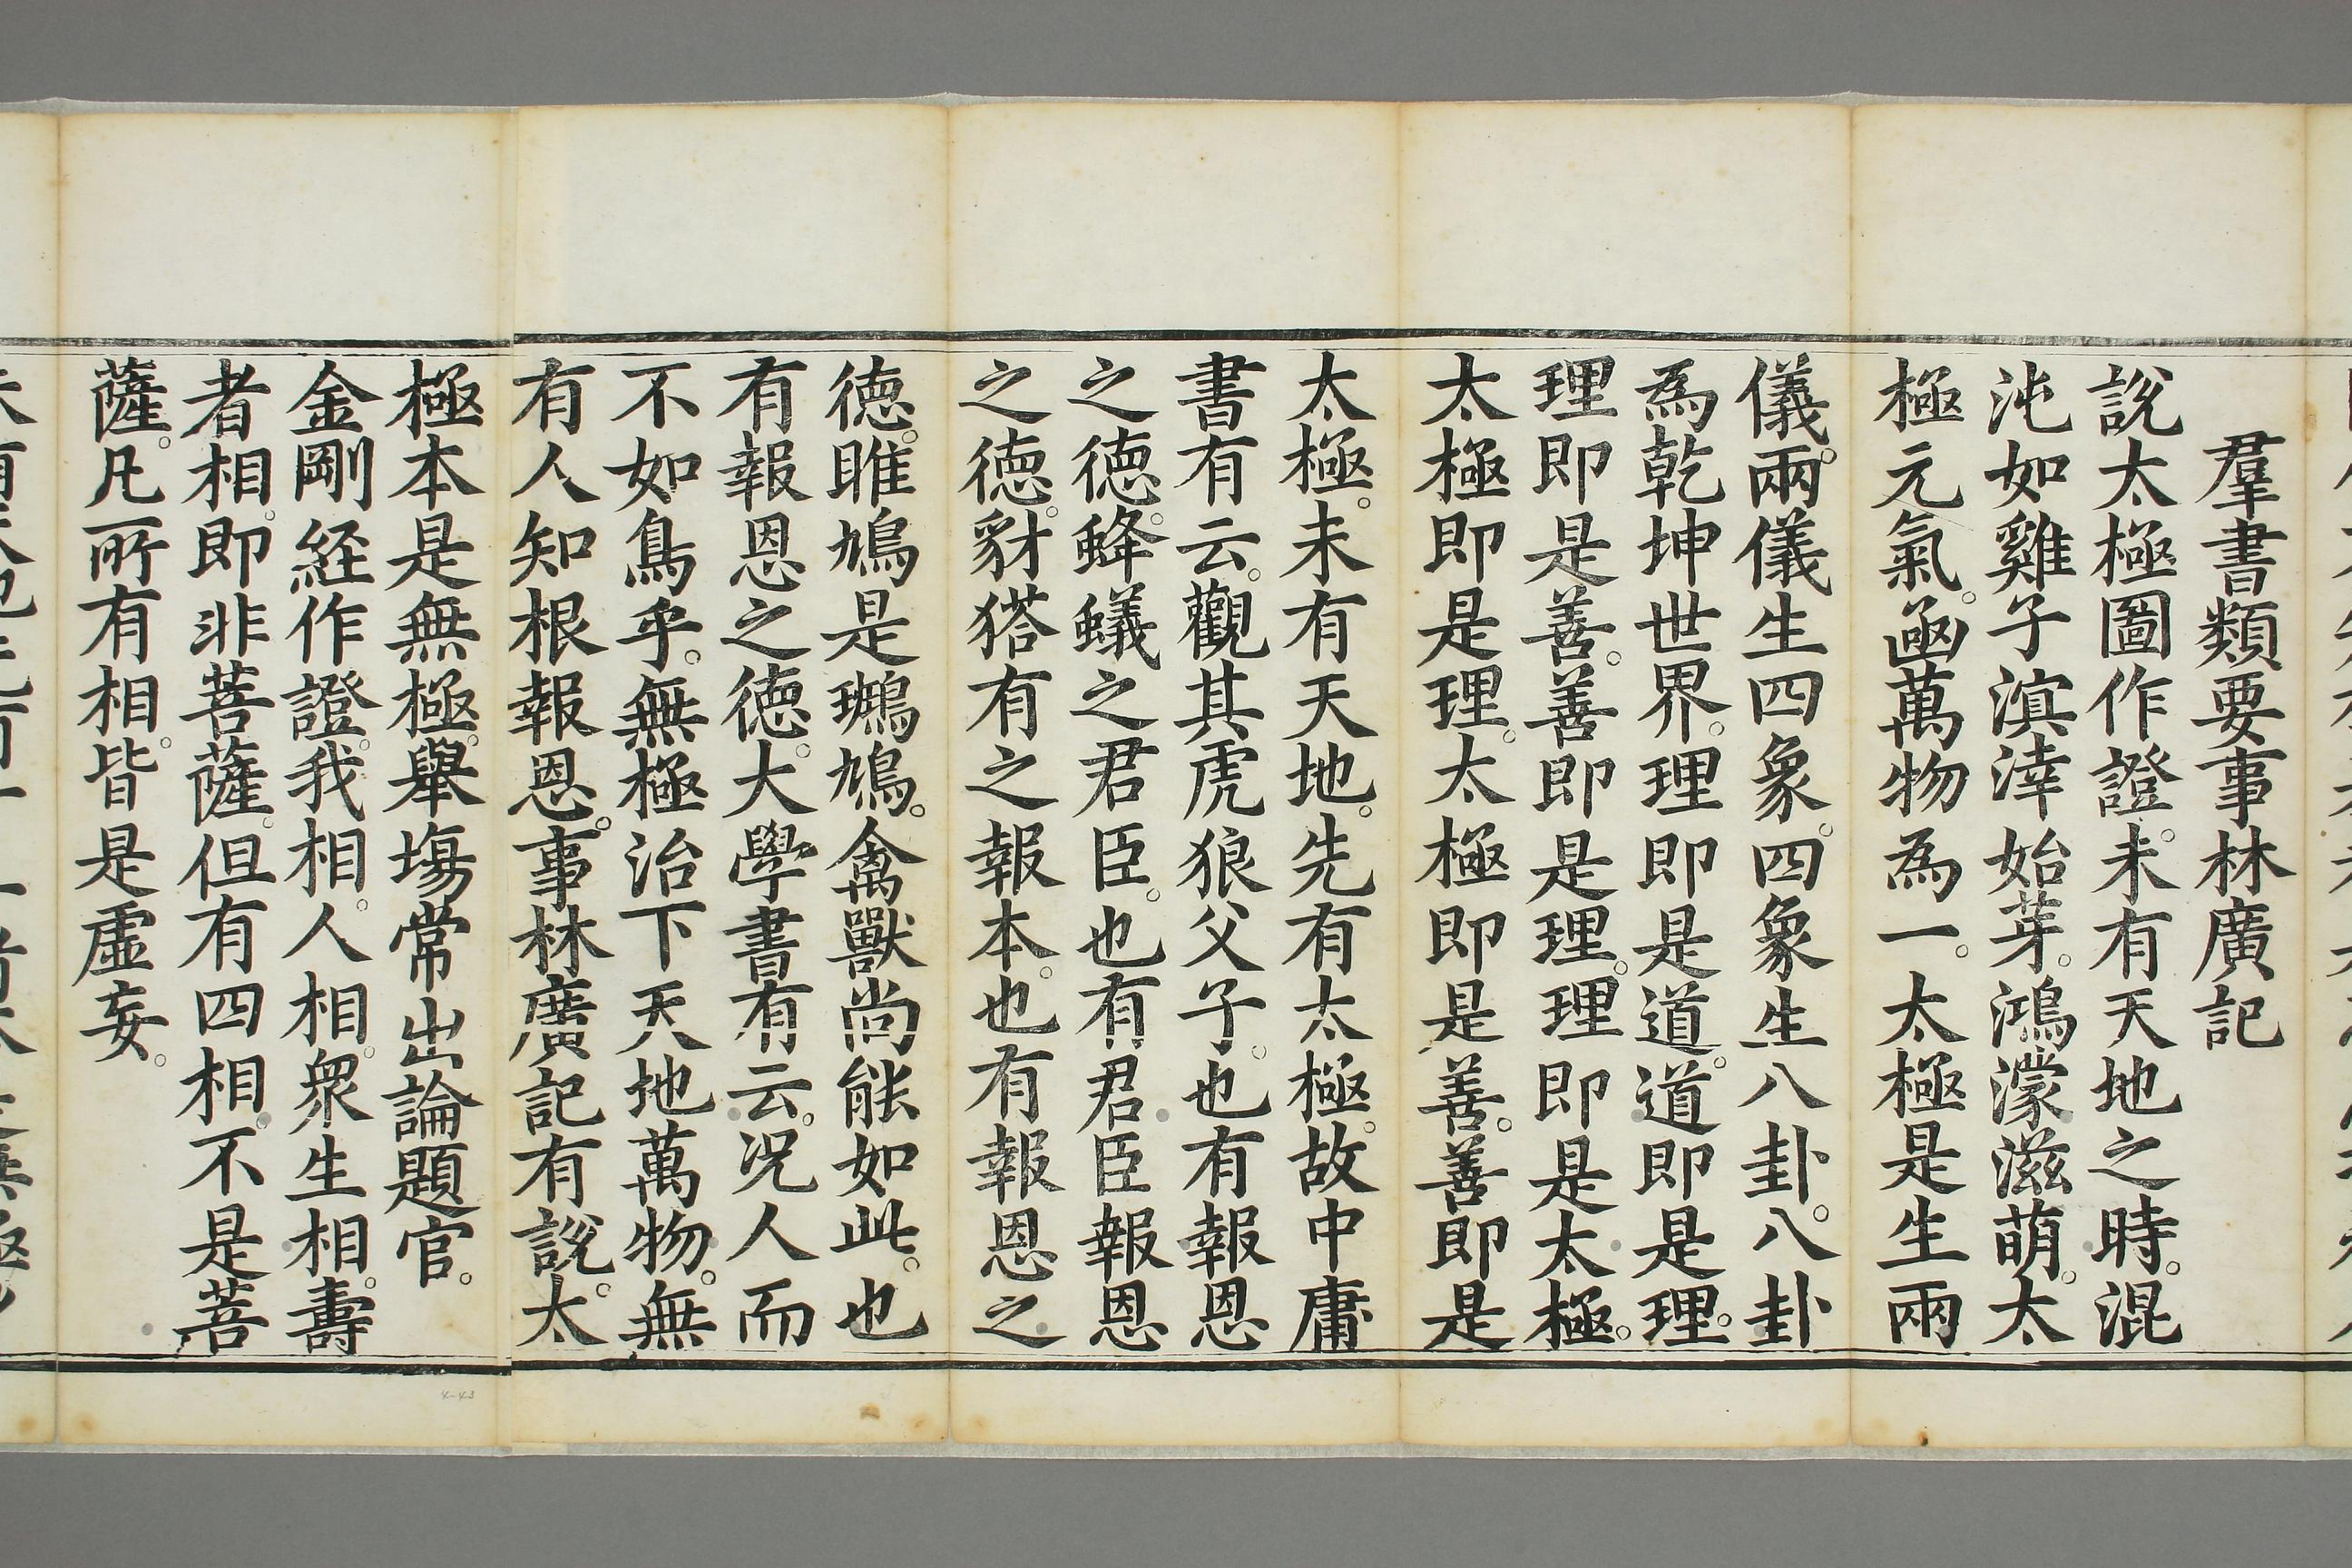 羣書類要事林廣記
說太極圖作證。未有天地之時。混
沌如雞子溟涬始芽。鴻濛滋萌。太
極元氣。凾萬物為一。太極是生兩
儀。兩儀生四象。四象生八卦。八卦
為乾坤世界。理即是道。道即是理。
理即是善。善即是理。理即是太極。
太極即是理。太極即是善。善即是
太極。未有天地。先有太極。故中庸
書有云。觀其虎狼父子。也有報恩
之德。蜂蟻之君臣。也有君臣報恩
之德。豺㺚有之報本。也有報恩之
德。睢鳩是鸜鳩。禽獸尚能如此。也
有報恩之德。大學書有云。况人而
不如鳥乎。無極治下天地萬物。無
有人知根報恩。事林廣記有說。太
極本是無極。舉塲常出論題官。
金剛経作證。我相。人相。衆生相。壽
者相。即非菩薩。但有四相。不是菩
薩。凡所有相。皆是虛妄。